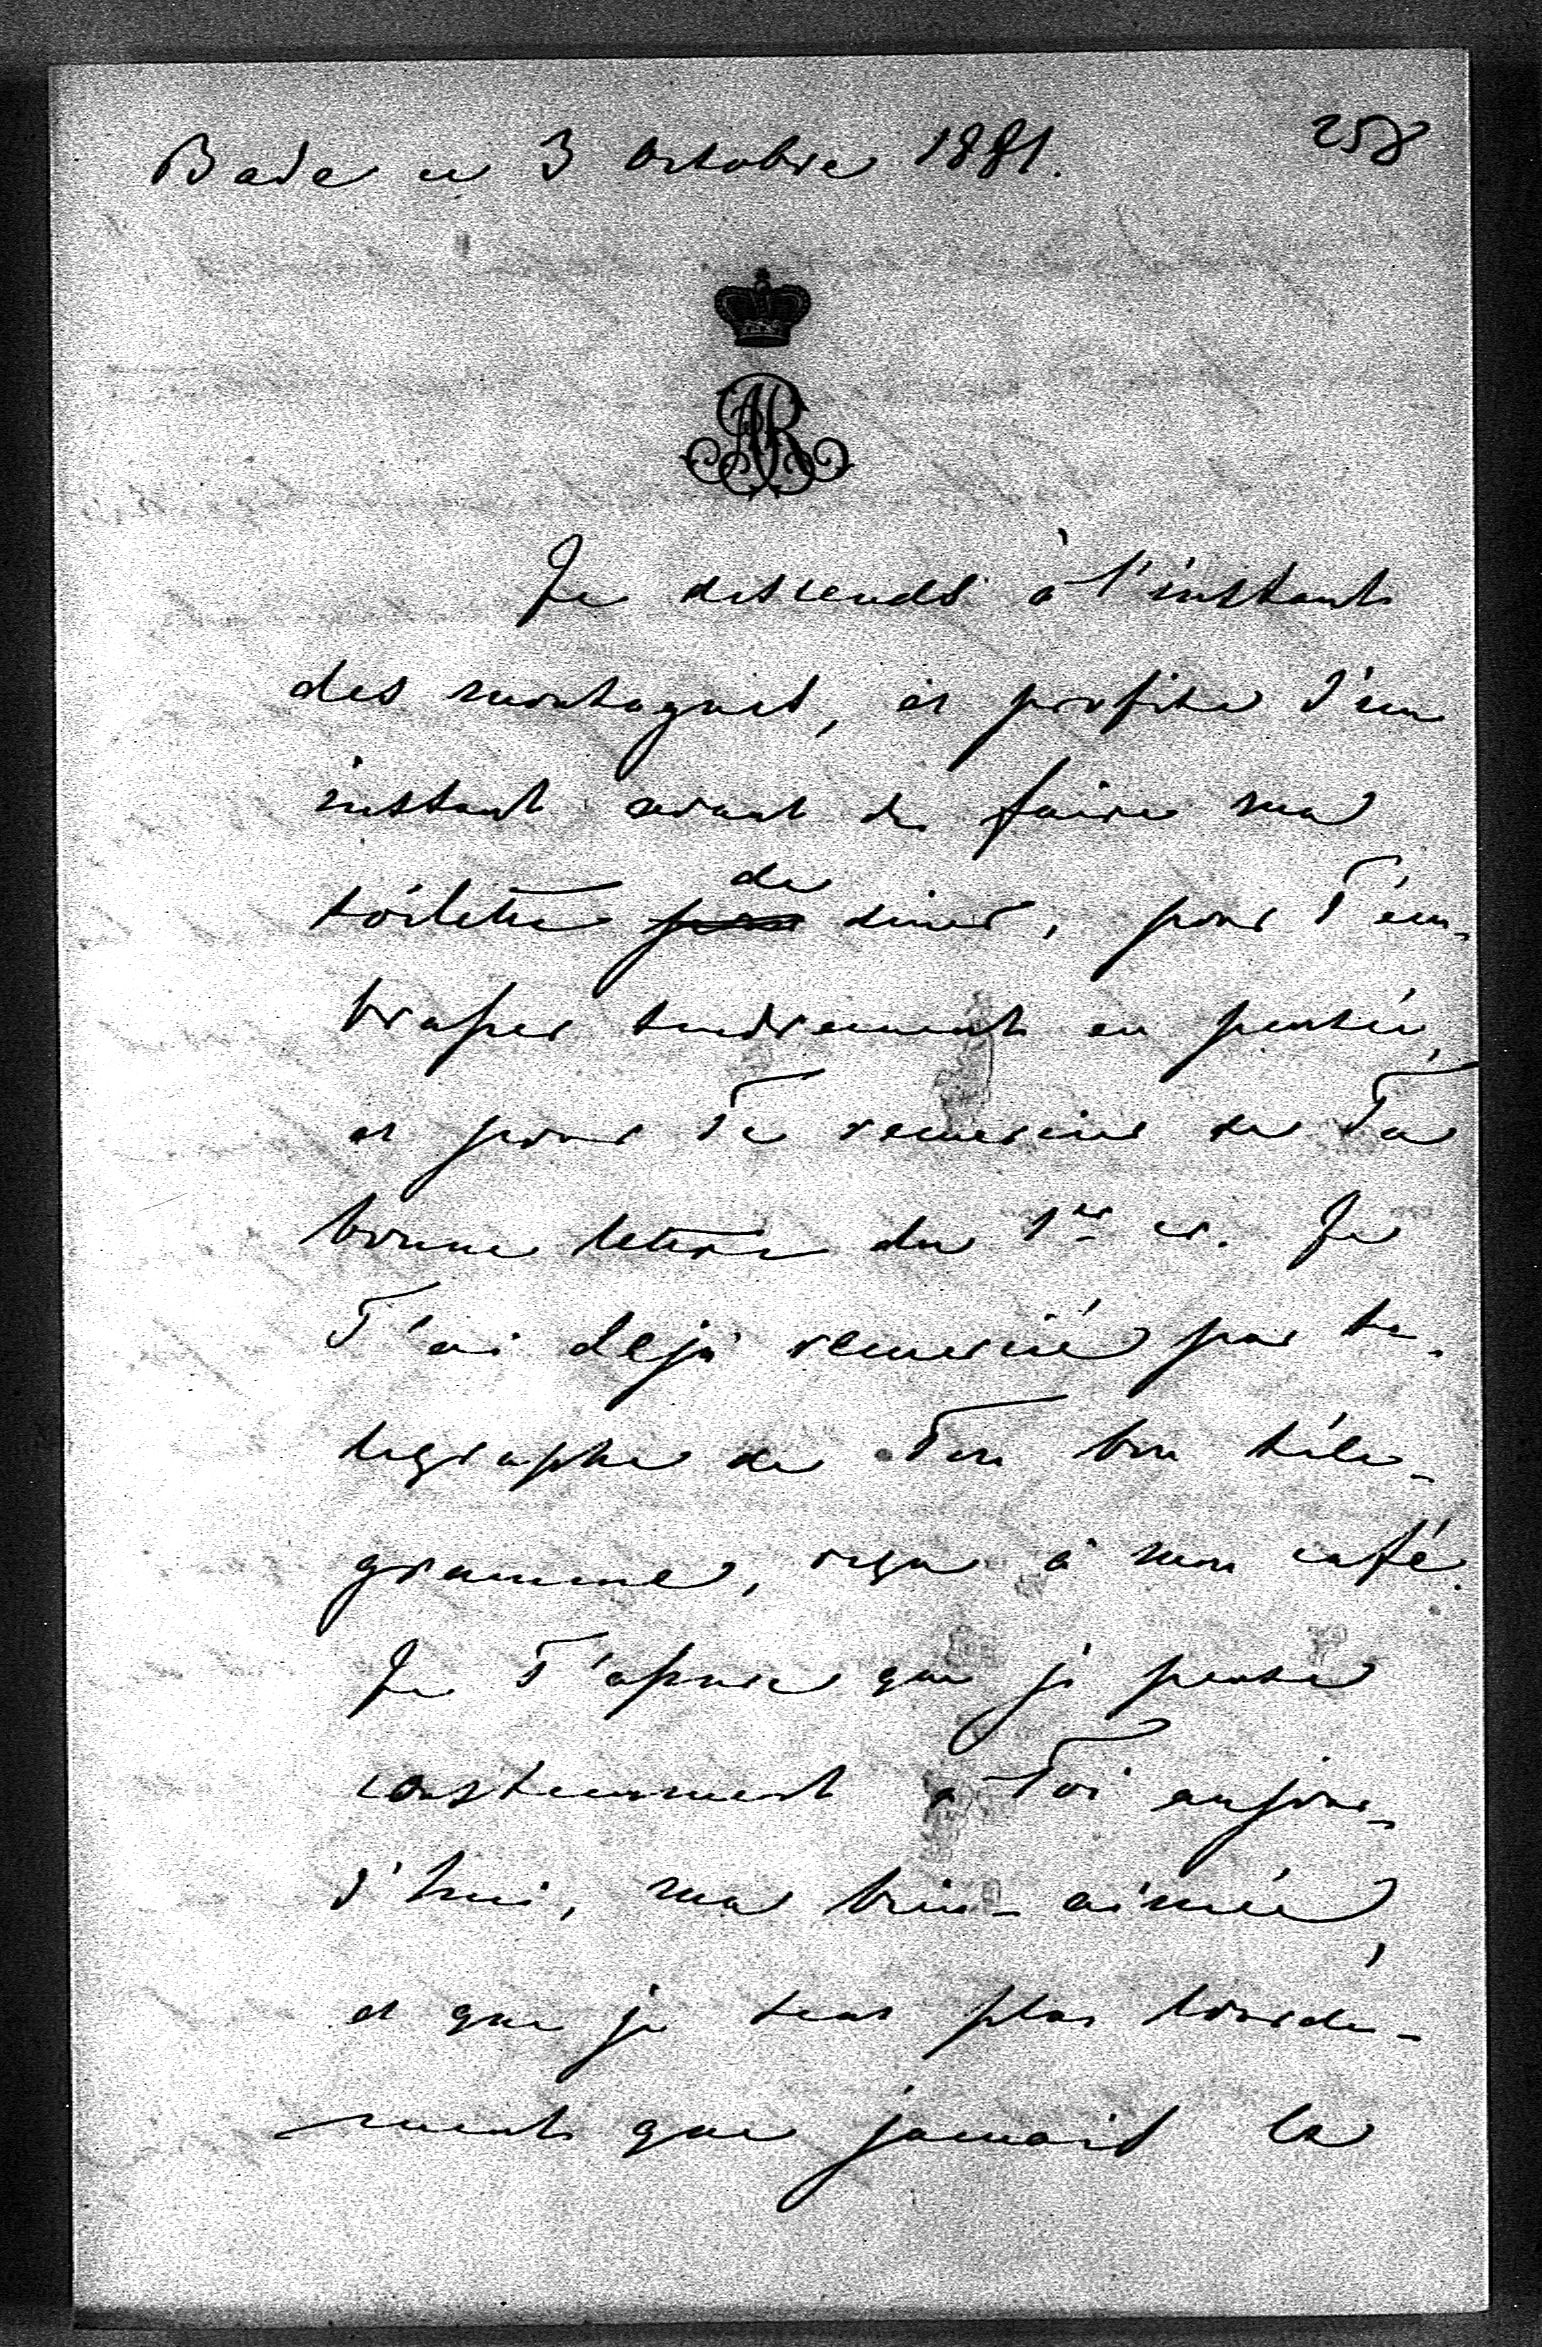 Bade ce 3 Octobre 1881. 258
AR
Je descends à l'instant
des montagnes, et profite d'un
instant avant de faire ma
toilette pour de diner, pour T'em-
brasser tendrement en pensée,
et pour Te remercier de Ta
bonne lettre du 1er ct. Je
T'ai déjà remercié par te-
legraphe de Ton bon télé-
gramme, reçu à mon café.
Je T'assure que je pense
constamment à Toi aujour-
d'hui, ma bien-aimée,
et que je sens plus lourde-
ment que jamais la